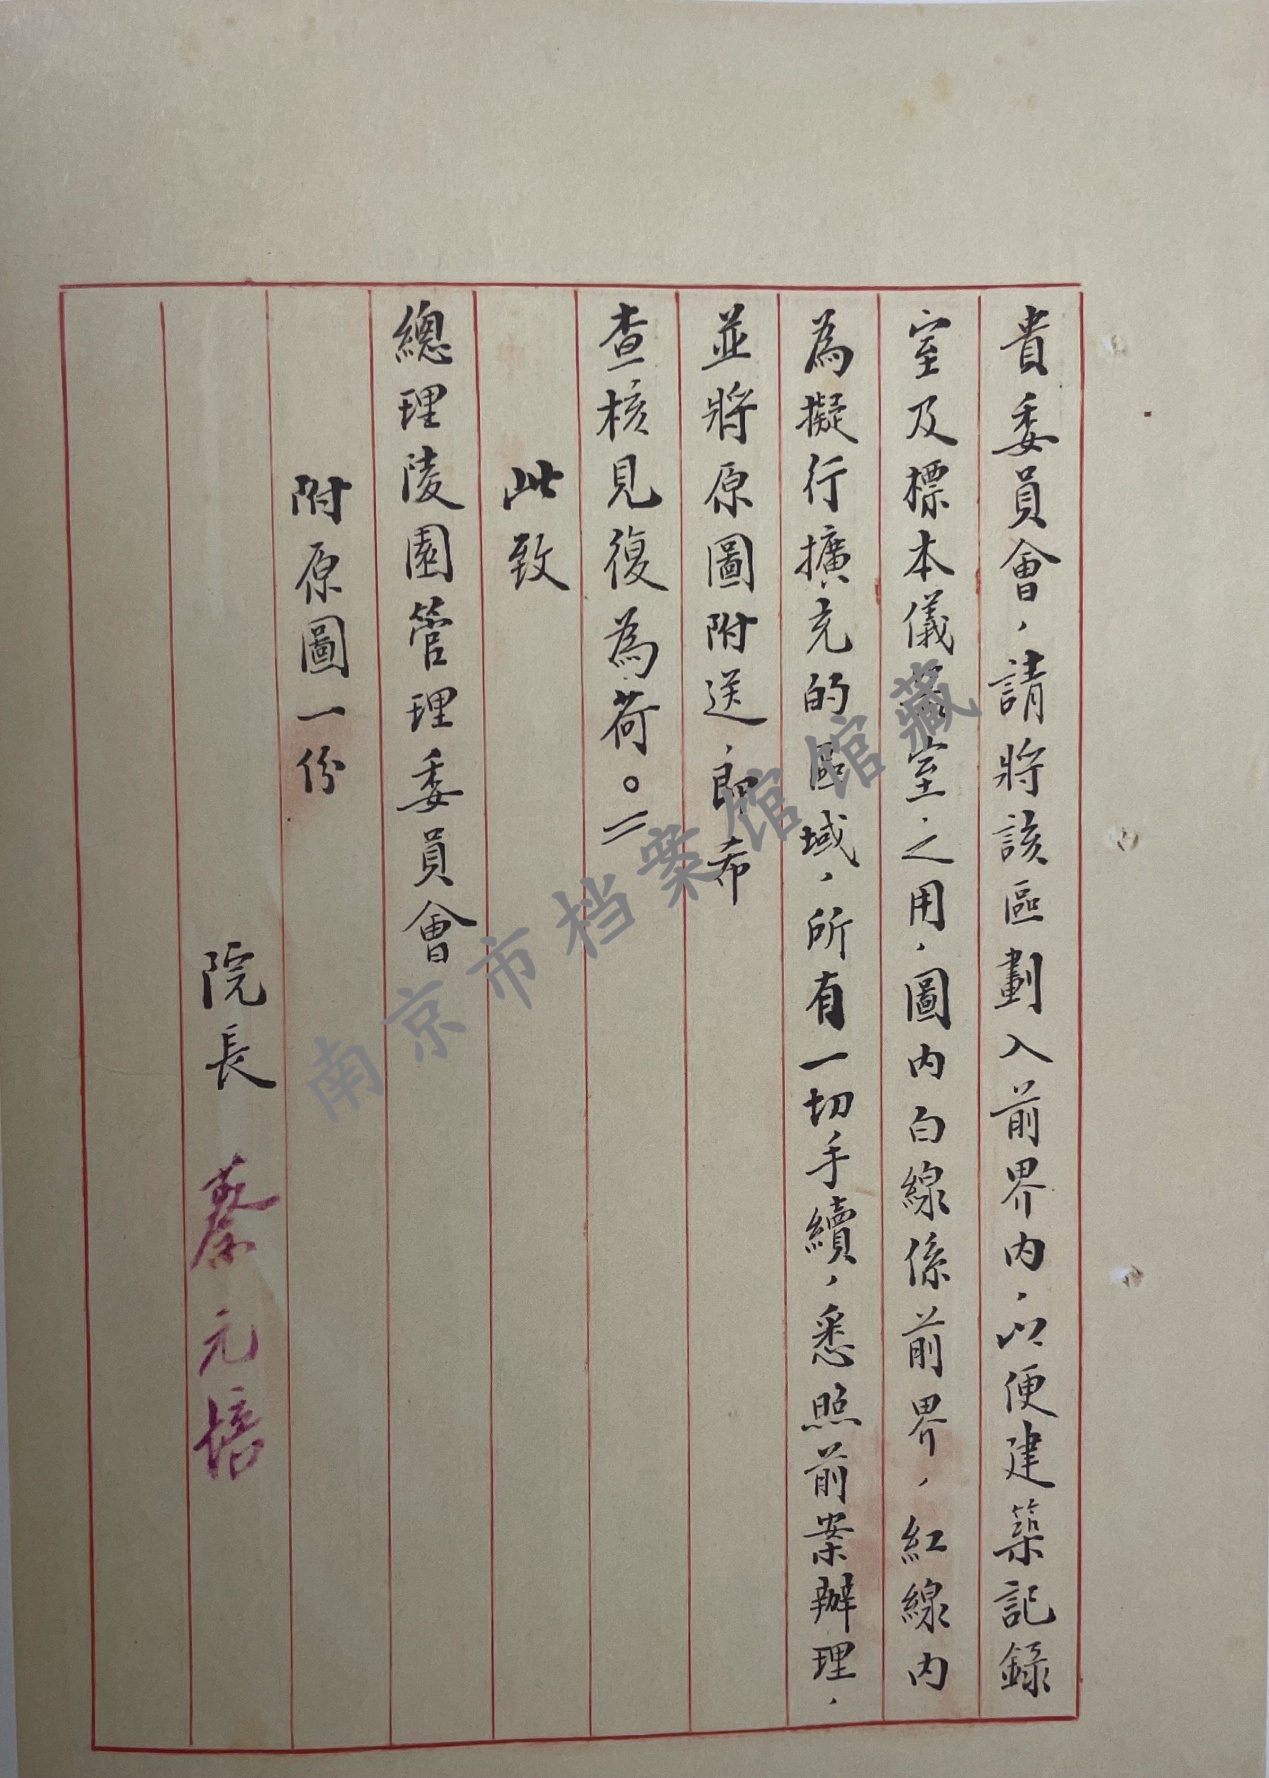 貴委員會，請將該區劃入前界內，以便建築記錄
室及標本儀器室之用，圖內白線係前界，紅線內
為擬行擴充的區域，所有一切手續，悉照前案辦理，
並將原圖附送，卽希
查核見復為荷。
此致
總理陵園管理委員會
附原圖一份
院長 蔡元培
南京市档案馆馆藏